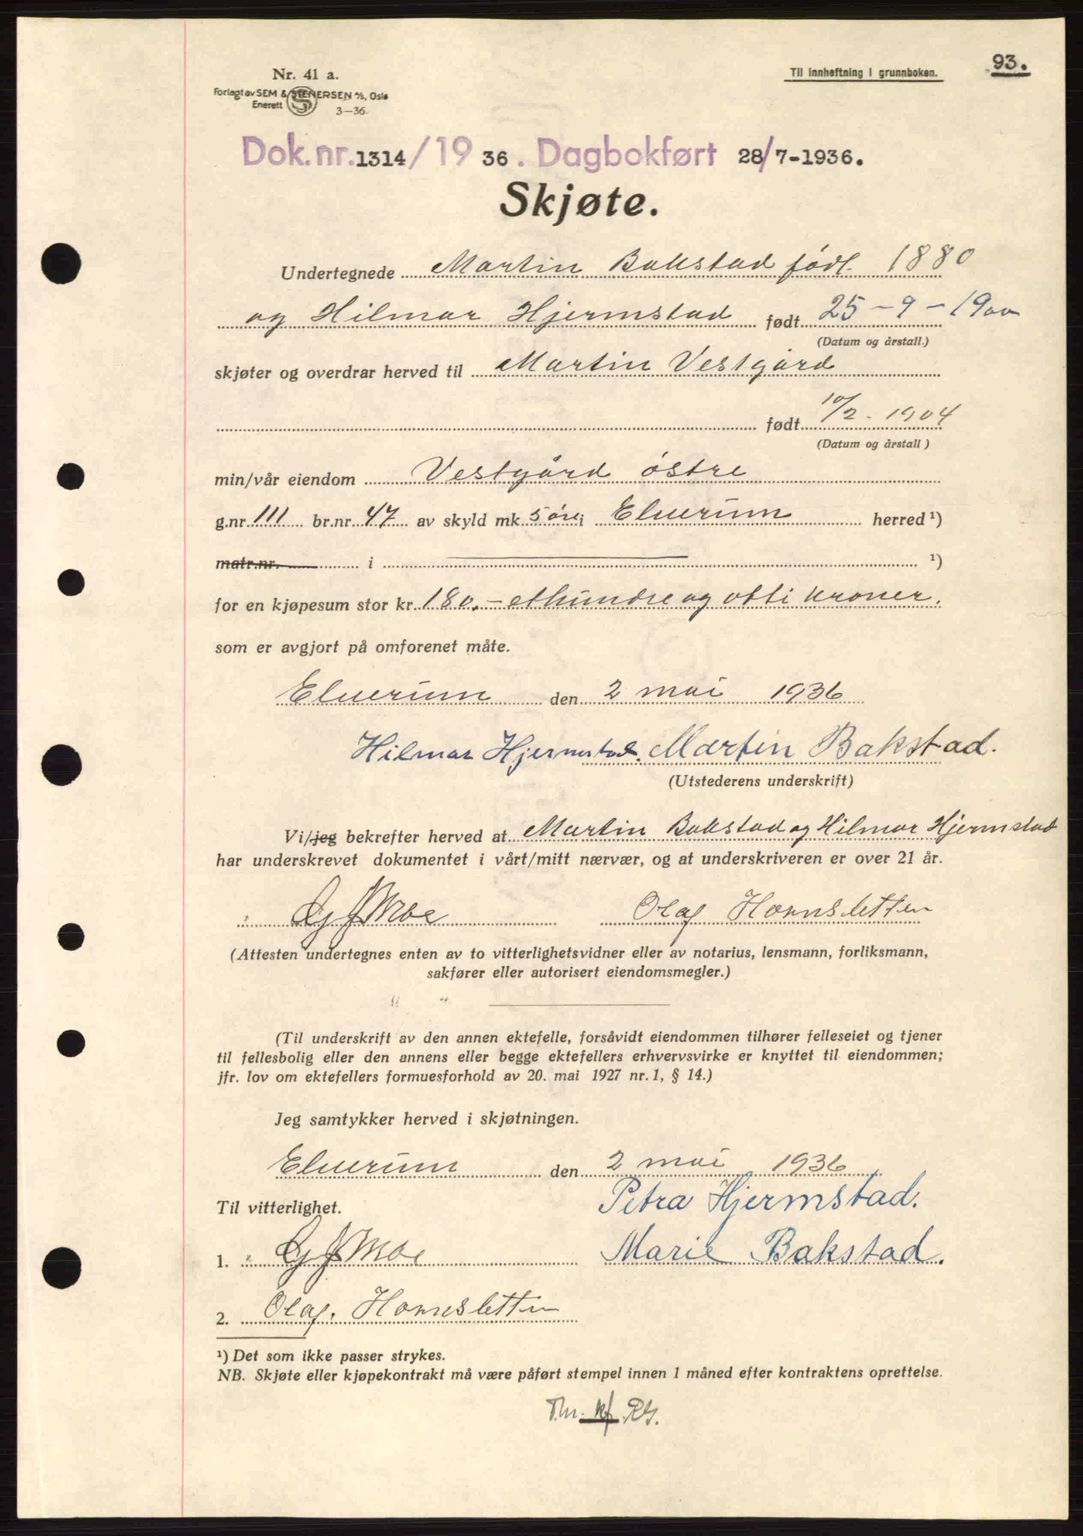 93.
Til innheftning i grunnboken.
Nr. 41 a.
Forlagt av SEM & STENERSEN A/S, Oslo
Enerett
3—36.
Dok.nr. 1314/19 36. Dagbokført 28/7-1936.
Skjøte.
Undertegnede Martin Bakstad født 1880
og Hilmar Hjermstad født 25-9-1900
(Datum og årstall.)
skjøter og overdrar herved til Martin Vestgård
født 10/2-1904
(Datum og årstall)
min/vår eiendom Vestgård østre
g.nr. 111 br.nr. 47 av skyld mk. 5 øre i Elverum herred ¹)
matr.nr. i ¹)
for en kjøpesum stor kr. 180.- ethundre og otti kroner.
som er avgjort på omforenet måte.
Elverum den 2 mai 1936
Hilmar Hjermstad. Martin Bakstad.
(Utstederens underskrift)
Vi/jeg bekrefter herved at Martin Bakstad og Hilmar Hjermstad
har underskrevet dokumentet i vårt/mitt nærvær, og at underskriveren er over 21 år.
Moe Olaf Hornsletten
(Attesten undertegnes enten av to vitterlighetsvidner eller av notarius, lensmann, forliksmann,
sakfører eller autorisert eiendomsmegler.)
(Til underskrift av den annen ektefelle, forsåvidt eiendommen tilhører felleseiet og tjener
til fellesbolig eller den annens eller begge ektefellers erhvervsvirke er knyttet til eiendommen;
jfr. lov om ektefellers formuesforhold av 20. mai 1927 nr. 1, § 14.)
Jeg samtykker herved i skjøtningen.
Elverum den 2 mai 1936
Til vitterlighet. Petra Hjermstad.
1. Moe Marie Bakstad.
2. Olaf Hornsletten
¹) Det som ikke passer strykes.
NB. Skjøte eller kjøpekontrakt må være påført stempel innen 1 måned efter kontraktens oprettelse.